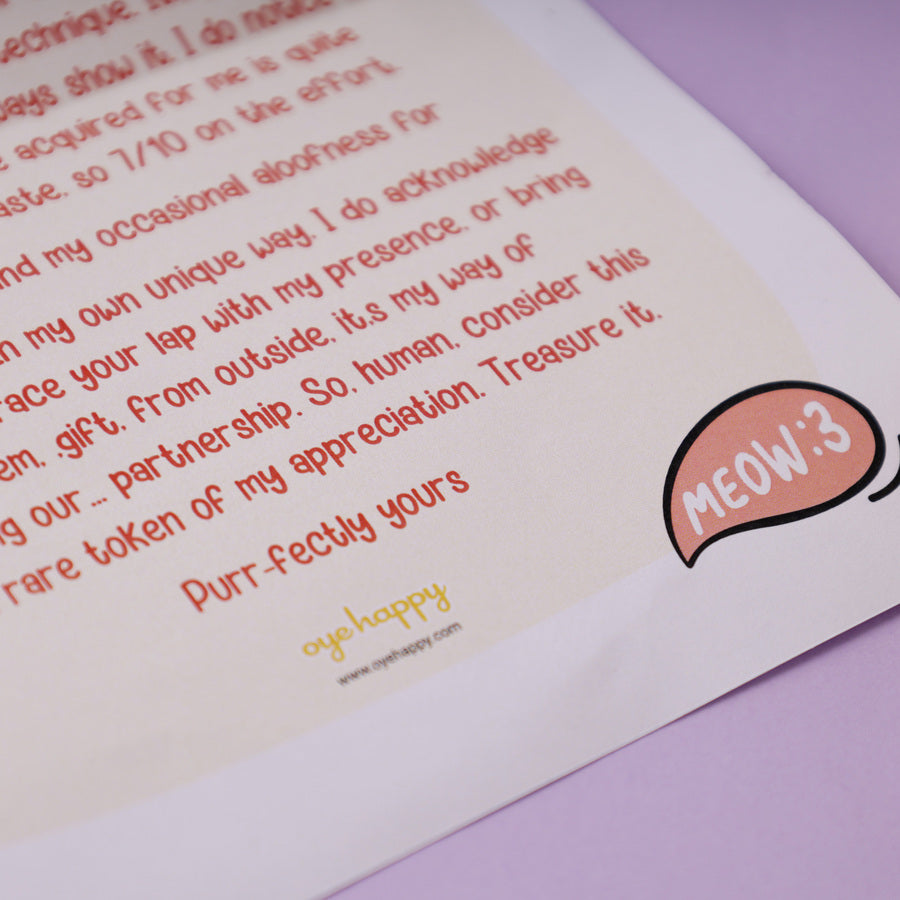 technique.
ays show it. I do notice
acquired for me is quite
aste, so 7/10 on the effort.
nd my occasional aloofness for
n my own unique way. I do acknowledge
race your lap with my presence, or bring
em, ,gift, from outside, it,s my way of
g our... partnership. So, human, consider this
rare token of my appreciation. Treasure it.
Purr-fectly yours
oyehappy
www.oyehappy.com
MEOW:3